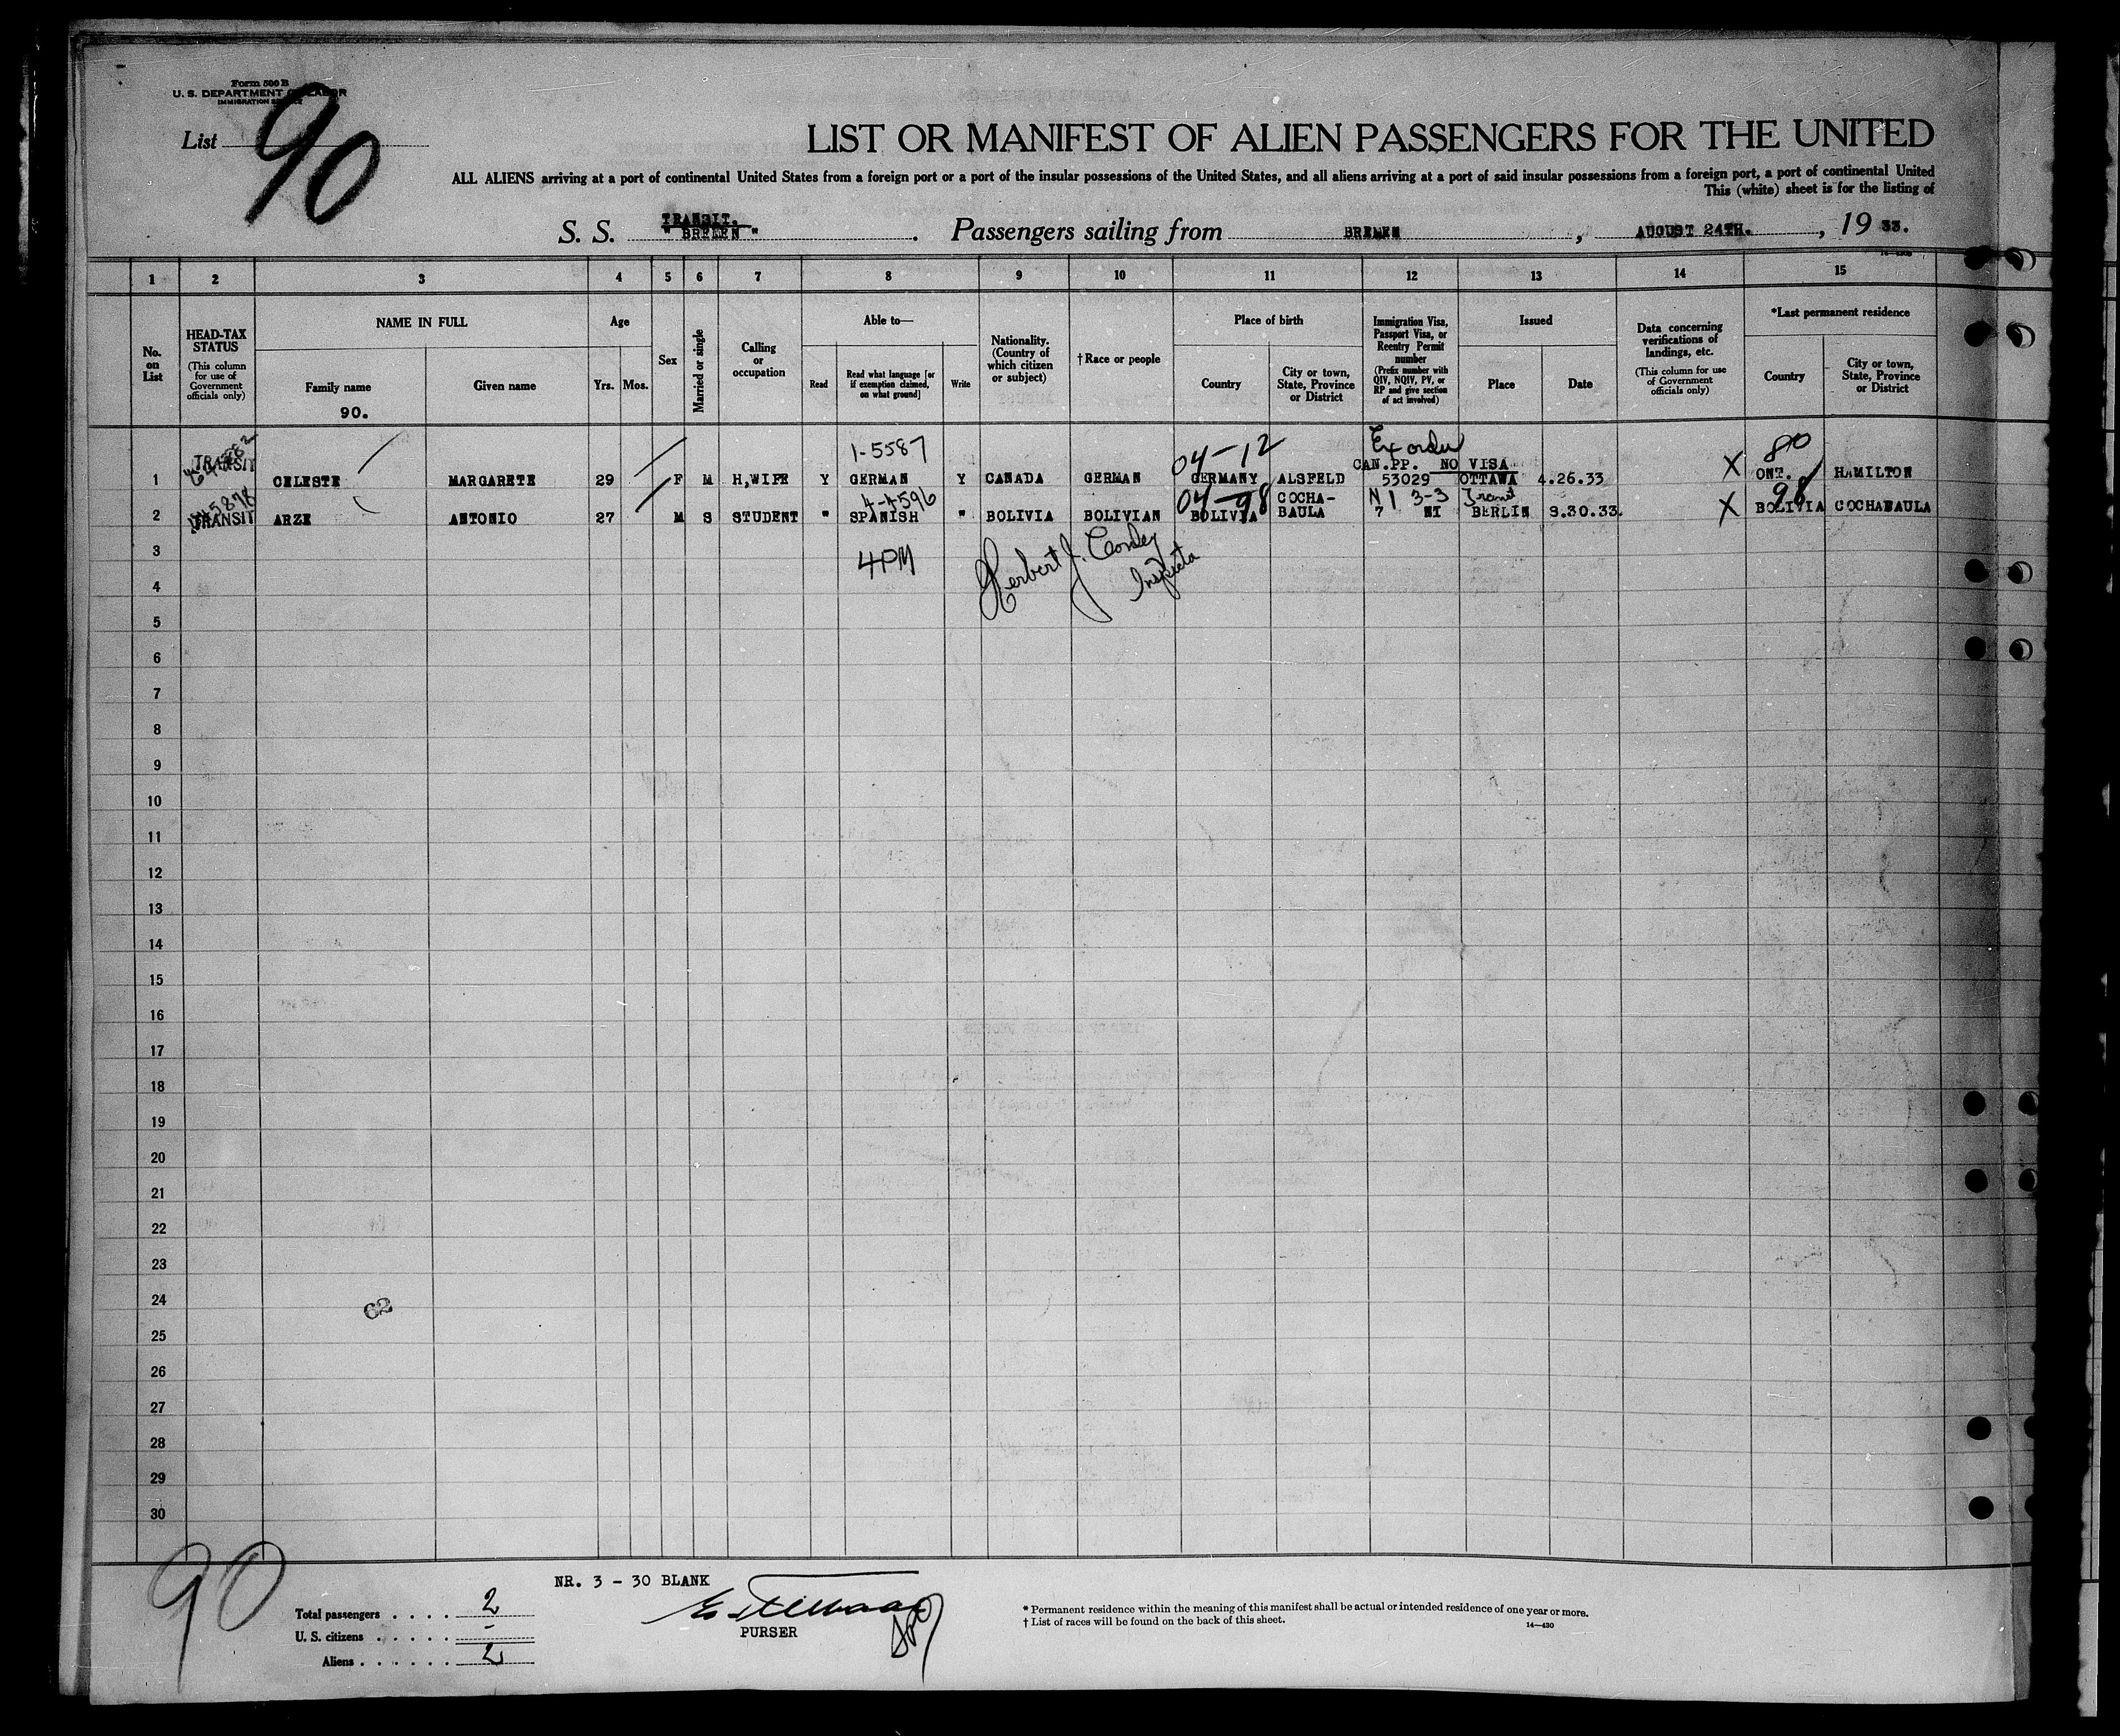 Form 500 B
U. S. DEPARTMENT OF LABOR
IMMIGRATION SERVICE
List 90
LIST OR MANIFEST OF ALIEN PASSENGERS FOR THE UNITED
ALL ALIENS arriving at a port of continental United States from a foreign port or a port of the insular possessions of the United States, and all aliens arriving at a port of said insular possessions from a foreign port, a port of continental United
This (white) sheet is for the listing of
TRANSIT.
S. S. "BREMEN". Passengers sailing from BREMEN, AUGUST 24TH., 19 33.
1 2 3 4 5 6 7 8 9 10 11 12 13 14 15
No. on List
HEAD-TAX STATUS
(This column for use of Government officials only)
NAME IN FULL
Family name
90.
Given name
Age
Yrs. Mos.
Sex
Married or single
Calling or occupation
Able to—
Read
Read what language [or if exemption claimed, on what ground]
Write
Nationality. (Country of which citizen or subject)
†Race or people
Place of birth
Country
City or town, State, Province or District
Immigration Visa, Passport Visa, or Reentry Permit number
(Prefix number with QIV, NQIV, PV, or RP and give section of act involved)
Issued
Place
Date
Data concerning verifications of landings, etc.
(This column for use of Government officials only)
*Last permanent residence
Country
City or town, State, Province or District
1-5587 04-12 Ex order 80
TRANSIT CAN.PP. NO VISA
1 CELESTE MARGARETE 29 F M H,WIFE Y GERMAN Y CANADA GERMAN GERMANY ALSFELD 53029 OTTAWA 4.26.33 X ONT. HAMILTON
4-4596 04-98 COCHA- N I 3-3 Transit 98
2 TRANSIT ARZE ANTONIO 27 M S STUDENT " SPANISH " BOLIVIA BOLIVIAN BOLIVIA BAULA 7 NI BERLIN 8.30.33. X BOLIVIA COCHABAULA
3
4PM Herbert J. Conley
Inspector
4
5
6
7
8
9
10
11
12
13
14
15
16
17
18
19
20
21
22
23
24
62
25
26
27
28
29
30
90
NR. 3 - 30 BLANK
Total passengers . . . . 2
U. S. citizens . . . . . -
Aliens . . . . . . 2
PURSER
* Permanent residence within the meaning of this manifest shall be actual or intended residence of one year or more.
† List of races will be found on the back of this sheet.
14—430